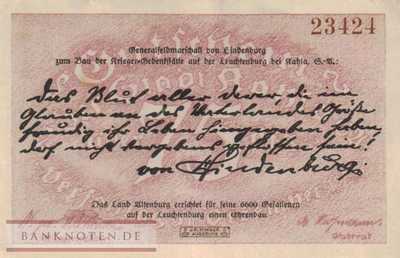 23424
Generalfeldmarschall von Hindenburg
zum Bau der Krieger-Gedenkstätte auf der Leuchtenburg bei Kahla, S.-A.:
Das Blut aller derer, die im
Glauben an des Vaterlandes Größe
freudig ihr Leben hingegeben haben,
darf nicht vergebens geflossen sein!
von Hindenburg
Das Land Altenburg errichtet für seine 6600 Gefallenen
auf der Leuchtenburg einen Ehrenbau
BANKNOTEN.DE